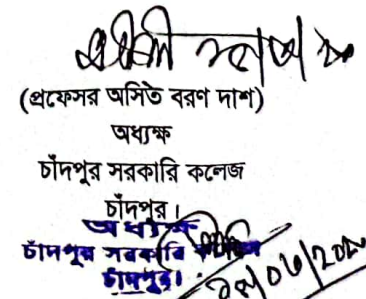 (প্রফেসর অসিত বরণ দাশ)
অধ্যক্ষ
চাঁদপুর সরকারি কলেজ
চাঁদপুর।
অধ্যক্ষ
চাঁদপুর সরকারি
চাঁদপুর।